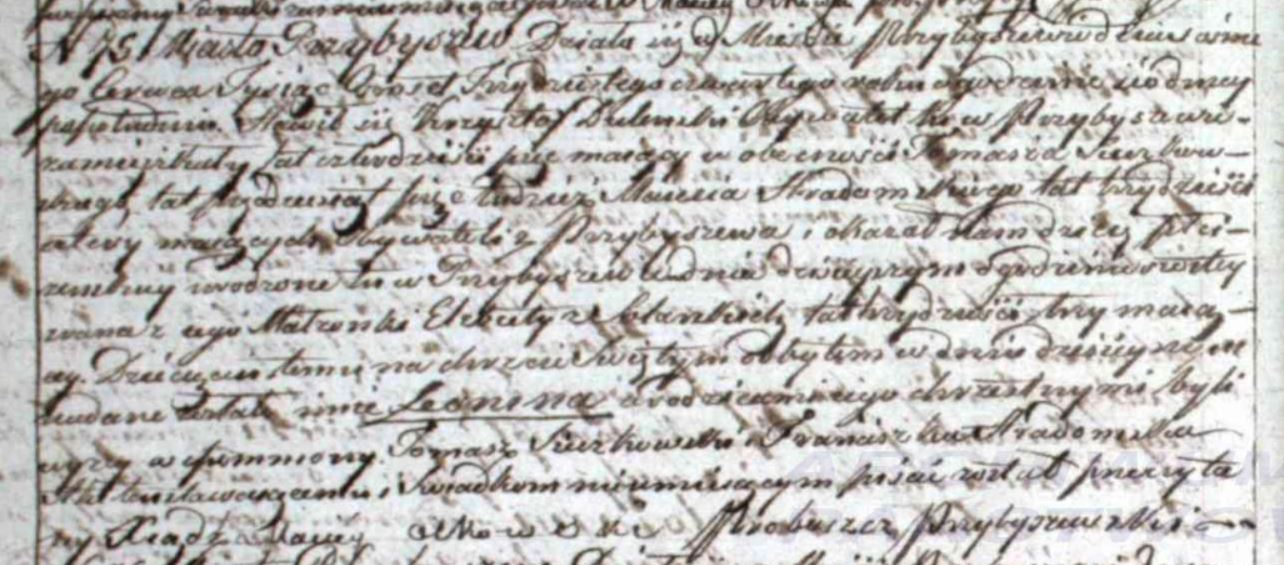 N 75 Miasto Przybyszew Działo się w Mieście Przybyszewie dnia ósme
go Czerwca Tysiąc Ośmset Trzydziestego czwartego roku o godzinie siódmey
popołudniu. Stawił się Krzysztof Obywatel tu w Przybyszewie
zamieszkały lat czterdzieści pięć maiący w obecności Tomasza Sieczkow-
skiego lat pięćdziesiąt pięć tudzież Macieia Stradomskiego lat trzydzieści
cztery maiących Obywateli z Przybyszewa i okazał Nam dziecię płci
żeńskiey urodzone tu w Przybyszewie w dniu dzisieyszym o godzinie szóstey
zrana z iego Małżonki Elżbiety z lat trzydzieści trzy maią-
cey. Dziecięciu temu na chrzcie Świętym odbytym w dniu dzisieyszym
nadane zostało imię Leonona a rodzicami iego chrzestnymi byli
wyżey wspomniony Tomasz Sieczkowski i Franciszka Stradomska
Akt ten stawaiącemu i Świadkom nieumieiącym pisać został przeczyta
ny Xiądz Maciey Proboszcz Przybyszewski